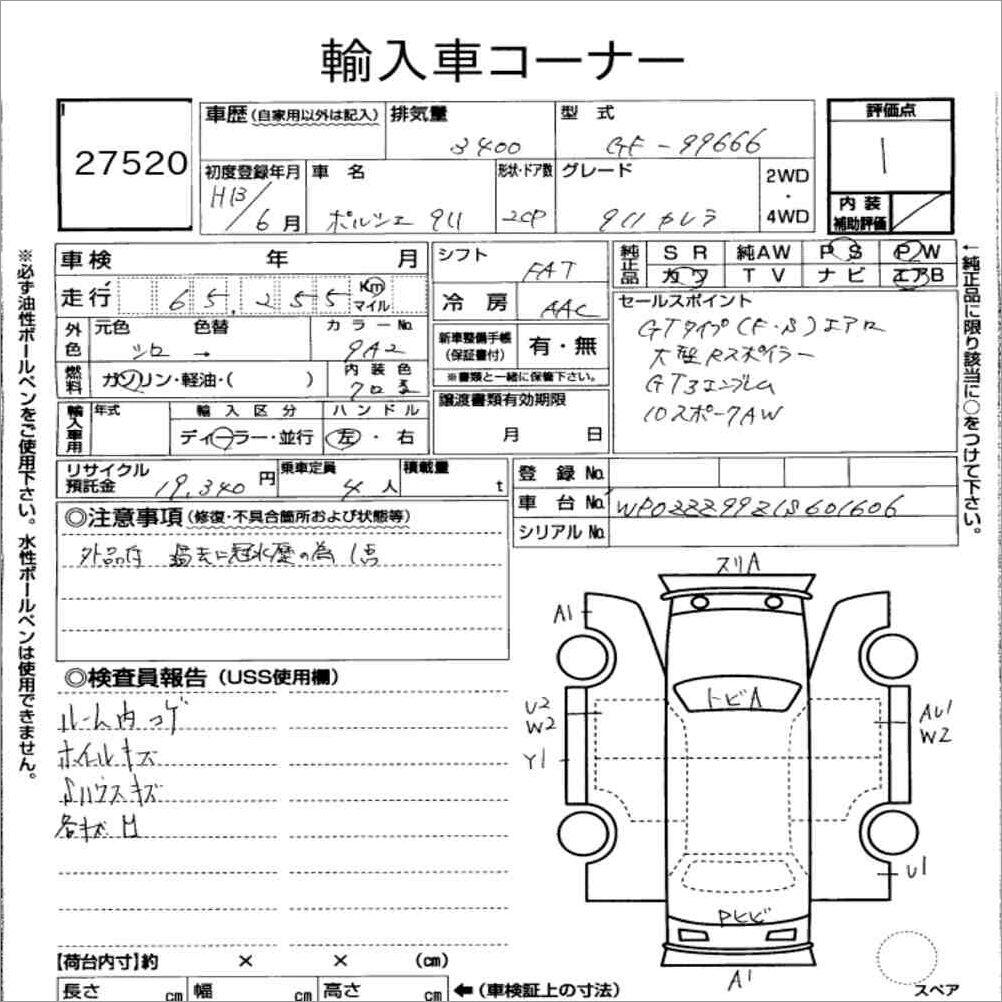 輸入車コーナー
27520
車歴 (自家用以外は記入)
排気量
3400
型 式
GF-99666
評価点
1
初度登録年月
H13/6月
車 名
ポルシェ 911
形状・ドア数
2CP
グレード
911カレラ
2WD
・
4WD
内 装
補助評価
車検 年 月
走行 65,255 Km
マイル
シフト
FAT
冷房 AAC
純正品
S R 純AW P S P W
カワ T V ナビ エアB
セールスポイント
GTタイプ(F・S)エアロ
大型Rスポイラー
GT3エンブレム
10スポークAW
外色
元色 色替
シロ →
カラーNo.
9A2
新車整備手帳
(保証書付)
有・無
※書類と一緒に保管下さい。
燃料
ガソリン・軽油・( )
内装色
クロ
譲渡書類有効期限
月 日
輸入車用
年式
輸入区分
ディーラー・並行
ハンドル
左・右
リサイクル
預託金
19,340円
乗車定員
4人
積載量
t
登録No.
車台No. WP0ZZZ99Z1S601606
シリアルNo.
◎注意事項 (修復・不具合箇所および状態等)
外品有 過去に冠水歴の為1点
◎検査員報告 (USS使用欄)
ルーム内コゲ
ホイールキズ
Sハウスキズ
各キズ凹
スリA
A1
トビA
U2
W2
Y1
AU1
W2
U1
Pヒビ
A1
スペア
【荷台内寸】約 × × (cm)
長さ cm 幅 cm 高さ cm ←(車検証上の寸法)
※必ず油性ボールペンをご使用下さい。水性ボールペンは使用できません。
←純正品に限り該当に○をつけて下さい。